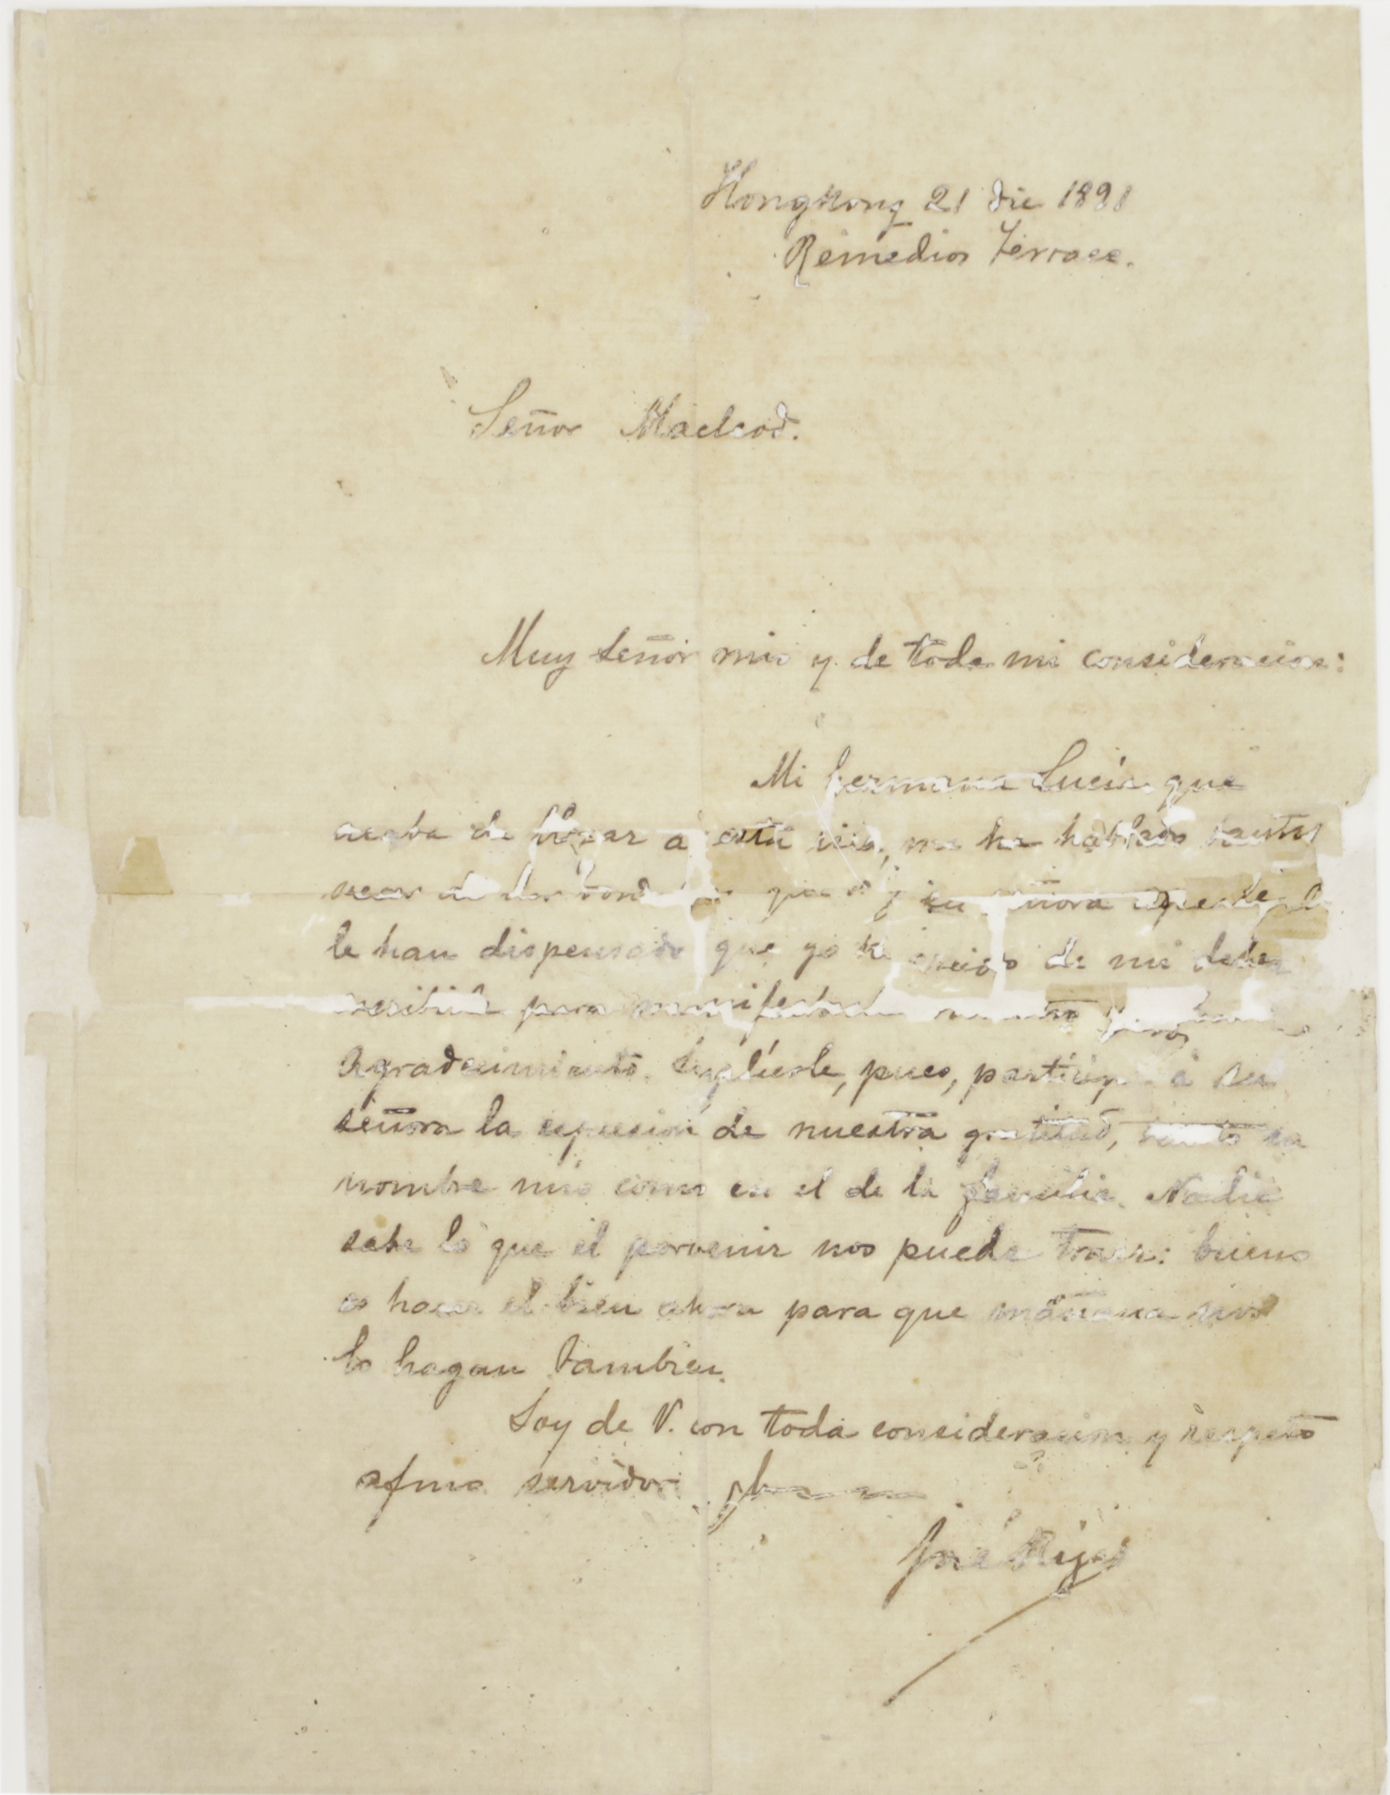 Hongkong 21 dic 1891
Remedios Terrace.
Señor Macleod.
Muy señor mio y de toda mi consideracion:
Mi hermana Lucía que
acaba de llegar á esta isla, me ha hablado tantas
veces de las que V y su señora
le han dispensado que yo he creido de mi deber
escribirle para manifestarle nuestro
agradecimiento. Suplícole, pues, participe á su
señora la espresion de nuestra gratitud, tanto en
nombre mio como en el de la familia. Nadie
sabe lo que el porvenir nos puede traer: bueno
es hacer el bien ahora para que mañana nos
lo hagan tambien.
Soy de V. con toda consideracion y respeto
afmo servidor
José Rizal